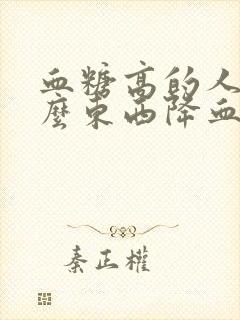 血糖高的人
麼東西降血
秦正權